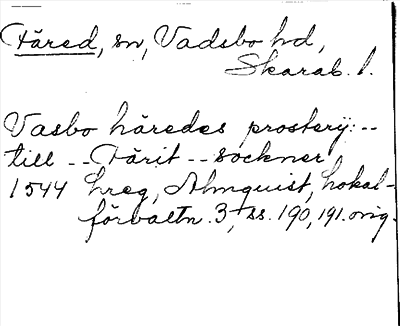 Färed, sn, Vadsbo hd,
Skarab. l.
Vasbo häredes prosterÿ: --
till -- Färit -- sockner
1544 hreg, Almquist, Lokal-
förvaltn. 3, ss. 190, 191. orig.